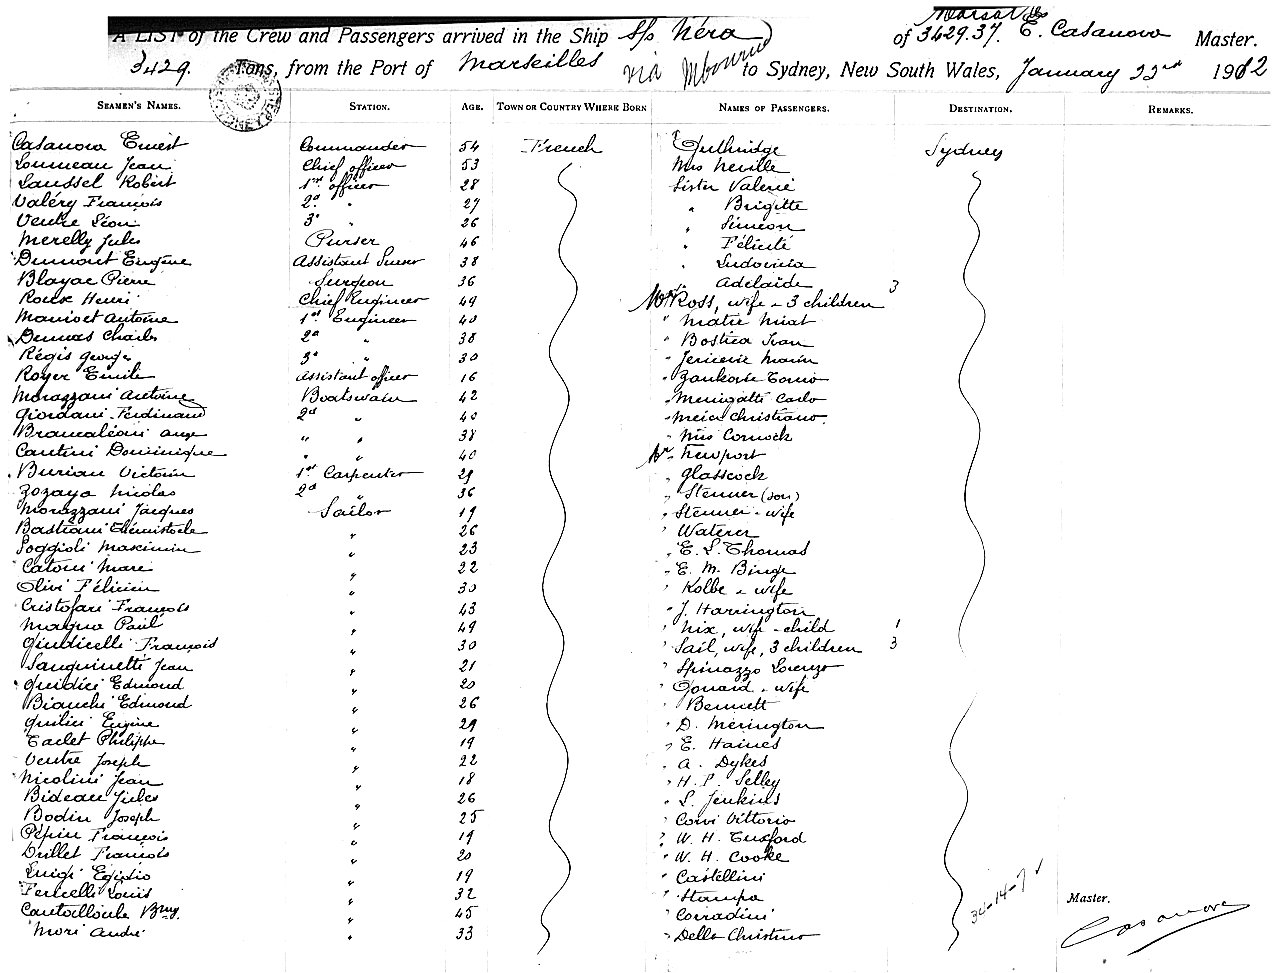 A LIST of the Crew and Passengers arrived in the Ship S/s Néra of 3429.37. E. Casanova Master.
3429. Tons, from the Port of Marseilles via Mbourne to Sydney, New South Wales, January 22nd 1912
SEAMEN'S NAMES. STATION. AGE. TOWN OR COUNTRY WHERE BORN NAMES OF PASSENGERS. DESTINATION. REMARKS.
Casanova Ernest Commander 54 French Guthridge Sydney
Jean Chief officer 53 Mrs Neville
Laussel Robert 1st officer 28 Sister Valerie
Valéry François 2d " 27 " Brigitte
Ventre Léon 3d " 26 " Simeon
Merelly Jules Purser 46 " Félicité
Dumont Eugène Assistant Purser 38 "
Blayac Pierre Surgeon 36 " Adelaide
Roux Henri Chief Engineer 49 Mr Ross, wife - 3 children 3
Antoine 1st Engineer 40 "
Charles 2d " 38 "
Régis George 3d " 30 "
Royer Emile Assistant officer 16 "
Morazzani Antoine Boatswain 42 " Carlo
Giordani Ferdinand 2d " 40 " Meier Christiano
Brancaléoni Ange " " 38 " Miss Cornock
Cantini Dominique " " 40 Mr Newport
Burian Victorin 1st Carpenter 29 " Glasscock
Zozaya Nicolas 2d " 36 " Stenner (son)
Morazzani Jacques Sailor 19 " Stenner - wife
Bastiani Thémistocle " 26 " Waterer
Poggioli Maximin " 23 " E. S. Thomas
Catoni Marc " 22 " E. M. Binge
Olivi Félicien " 30 " Kolbe - wife
Cristofari François " 43 " J. Harrington
Paul " 49 " Nix, wife - child 1
Giudicelli François " 30 " Sail, wife, 3 children 3
Sanguinetti Jean " 21 " Spinazzo Lorenzo
Guidici Edmond " 20 " Gouard - wife
Bianchi Edmond " 26 " Bennett
Quilici Eugène " 29 " D. Merington
Philippe " 19 " E. Haines
Ventre Joseph " 22 " A. Dykes
Nicolini Jean " 18 " H. P. Selley
Bideau Jules " 26 " S. Jenkins
Bodin Joseph " 25 " Corvi Vittorio
Pépin François " 19 " W. H. Tuxford
Drillet François " 20 " W. H. Cooke
Luigi Egidio " 19 " Castellini
Louis " 32 " Stampa Master.
" 45 " Corradini Casanova
Mori André " 33 " Della Christino